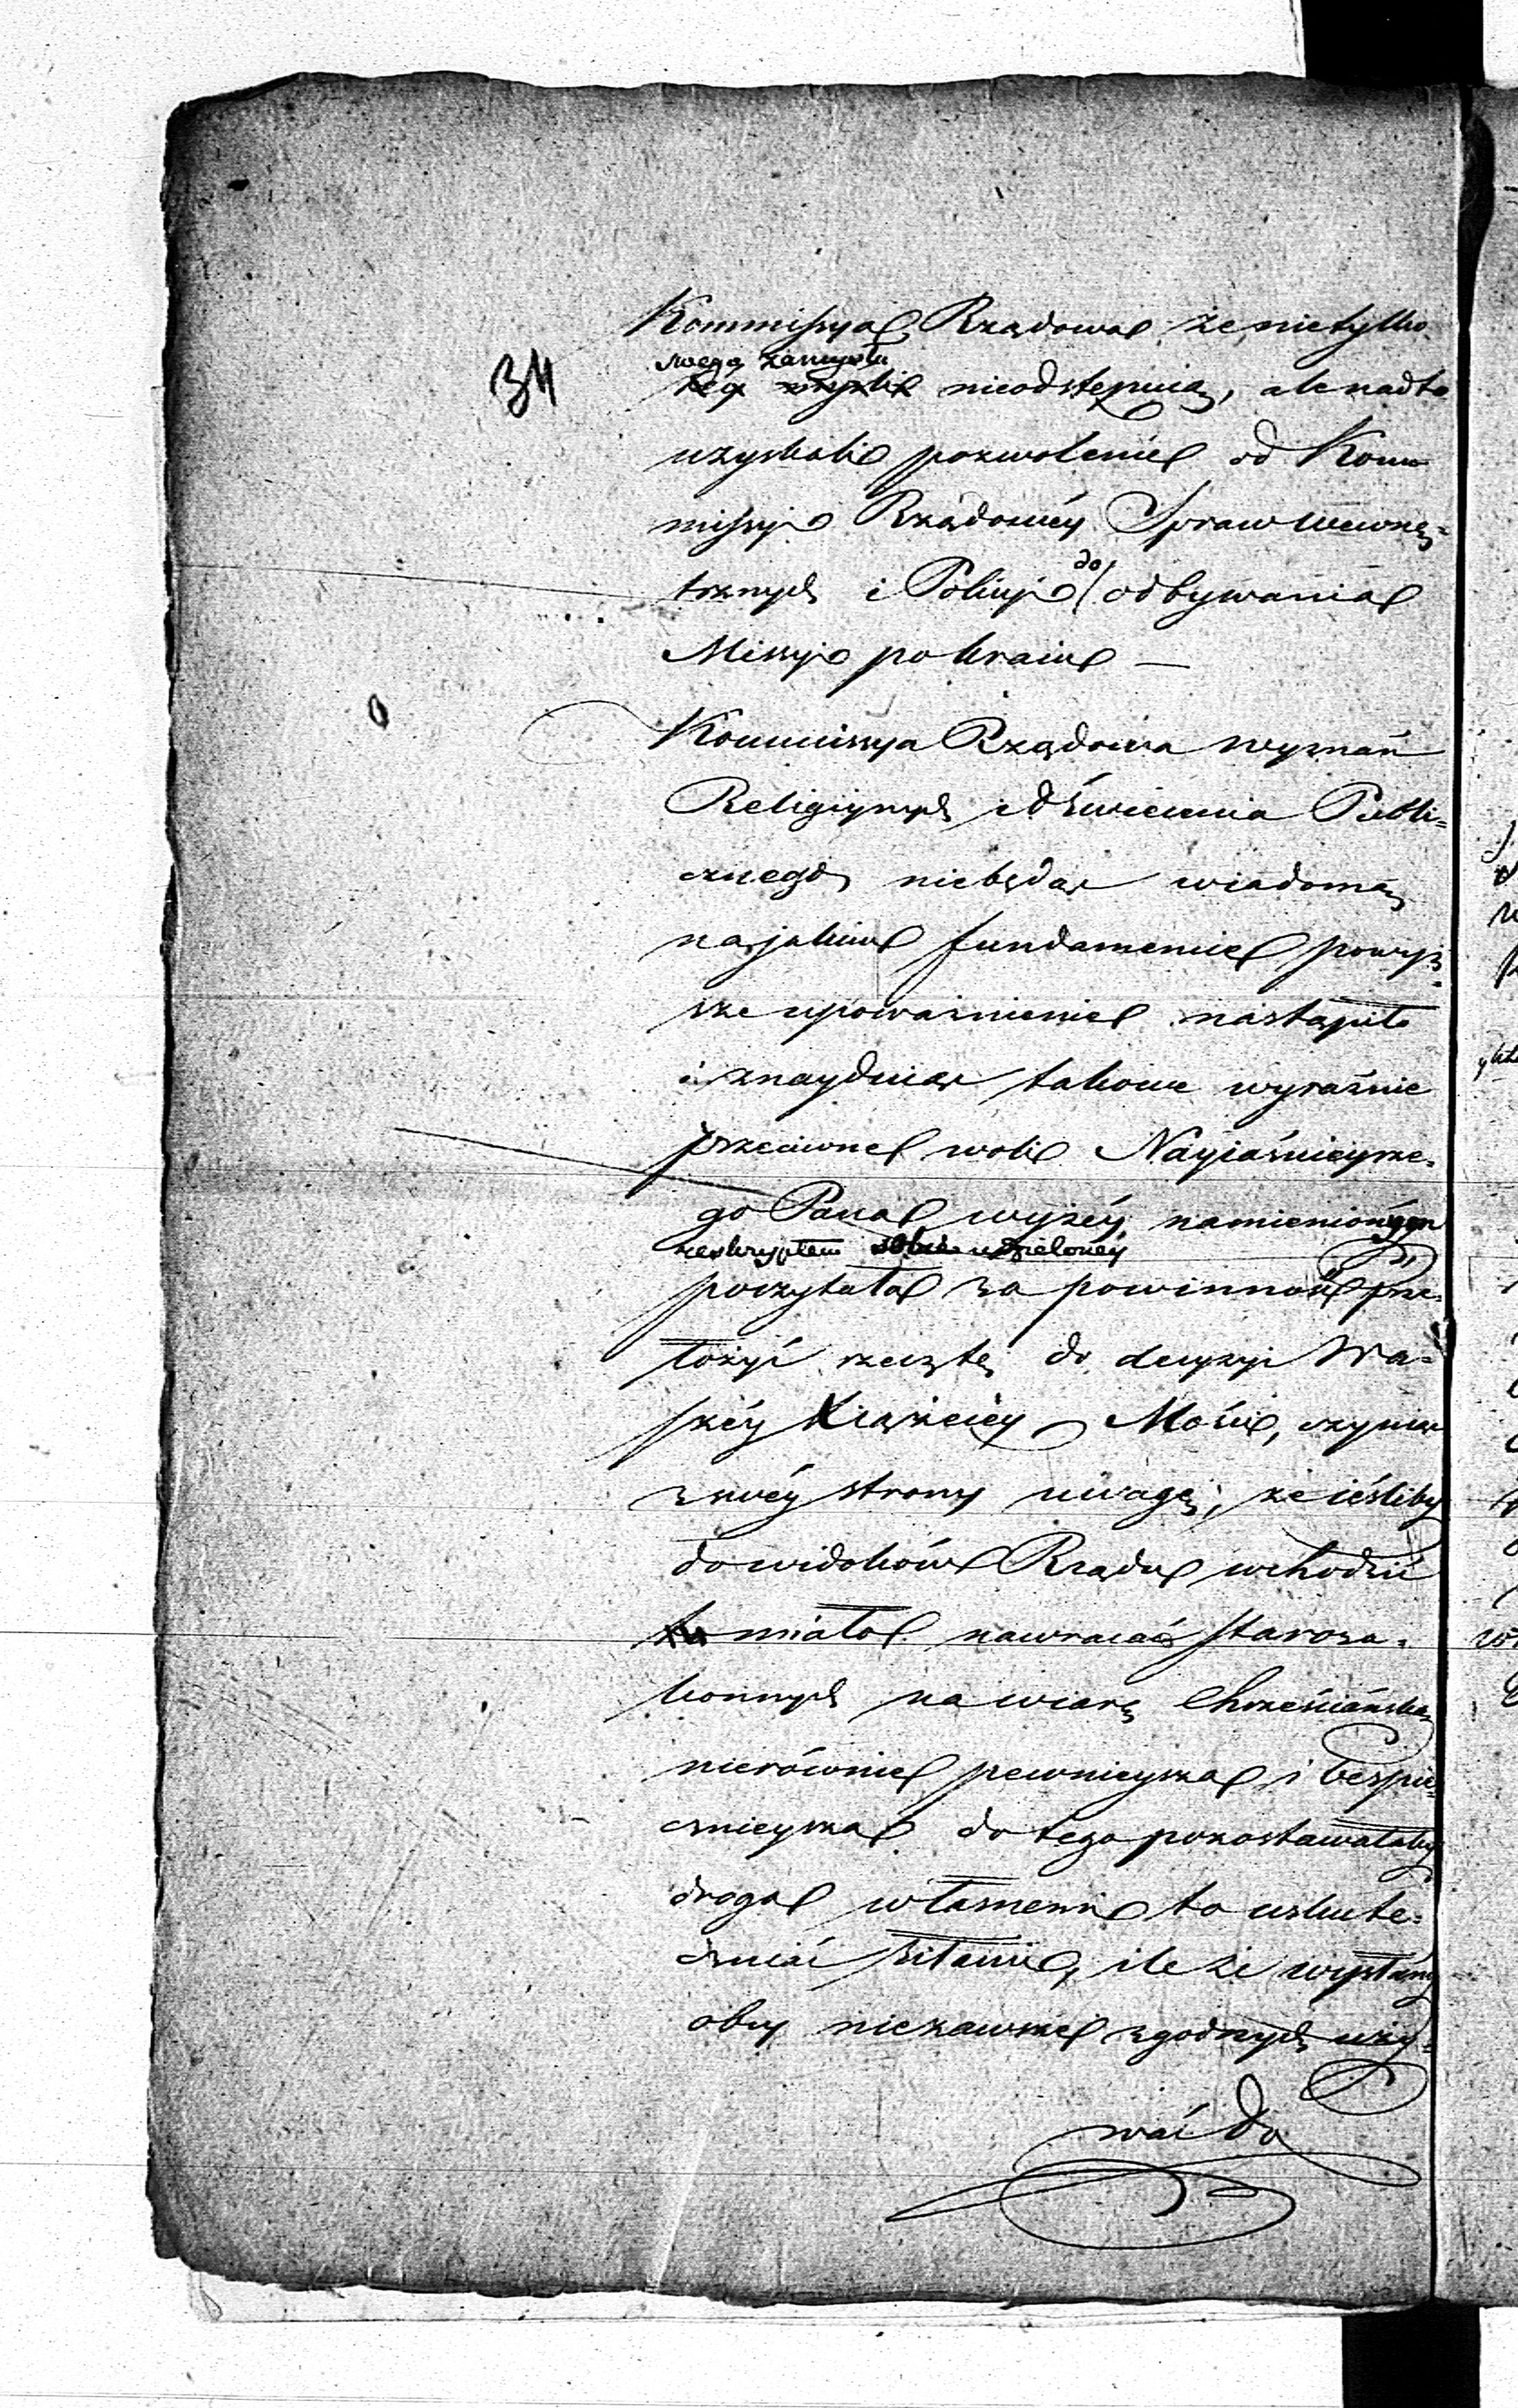 Kommissya Rządowa, że nietylko
swego zamysłu
34
tey myśli nieodstępuią, ale nadto
uzyskali pozwolenie od Kom
missyi Rządowéy Spraw Wewnę=
trznych i Policyi do odbywania
Missyi po kraiu —
Kommissya Rządowa wyznań
Religiynych i Oświecenia Publi=
cznego niebędąc wiadomą
na jakim fundamencie powyż=
sze upoważnienie nastąpiło
i znayduiąc takowe wyraźnie
przeciwne woli Nayiaśnieysze=
go Pana wyżéy namienionym
reskryptem udzielonéy
poczytała za powinność prze=
łożyć rzecz tę do decyzyi Wa=
széy Xiążęcéy Mości, czyniąc
z swéy strony uwagę, że ieśliby
do widoków Rządu wchodzić
miało nawracać staroza=
konnych na wiarę Chrześciańską
nierównie pewnieysza i bespie=
cznieysza do tego pozostawałaby
droga własnemi to uskute=
czniać siłami, ile że wysłany
obcy niezawsze zgodnych uży=
wać do